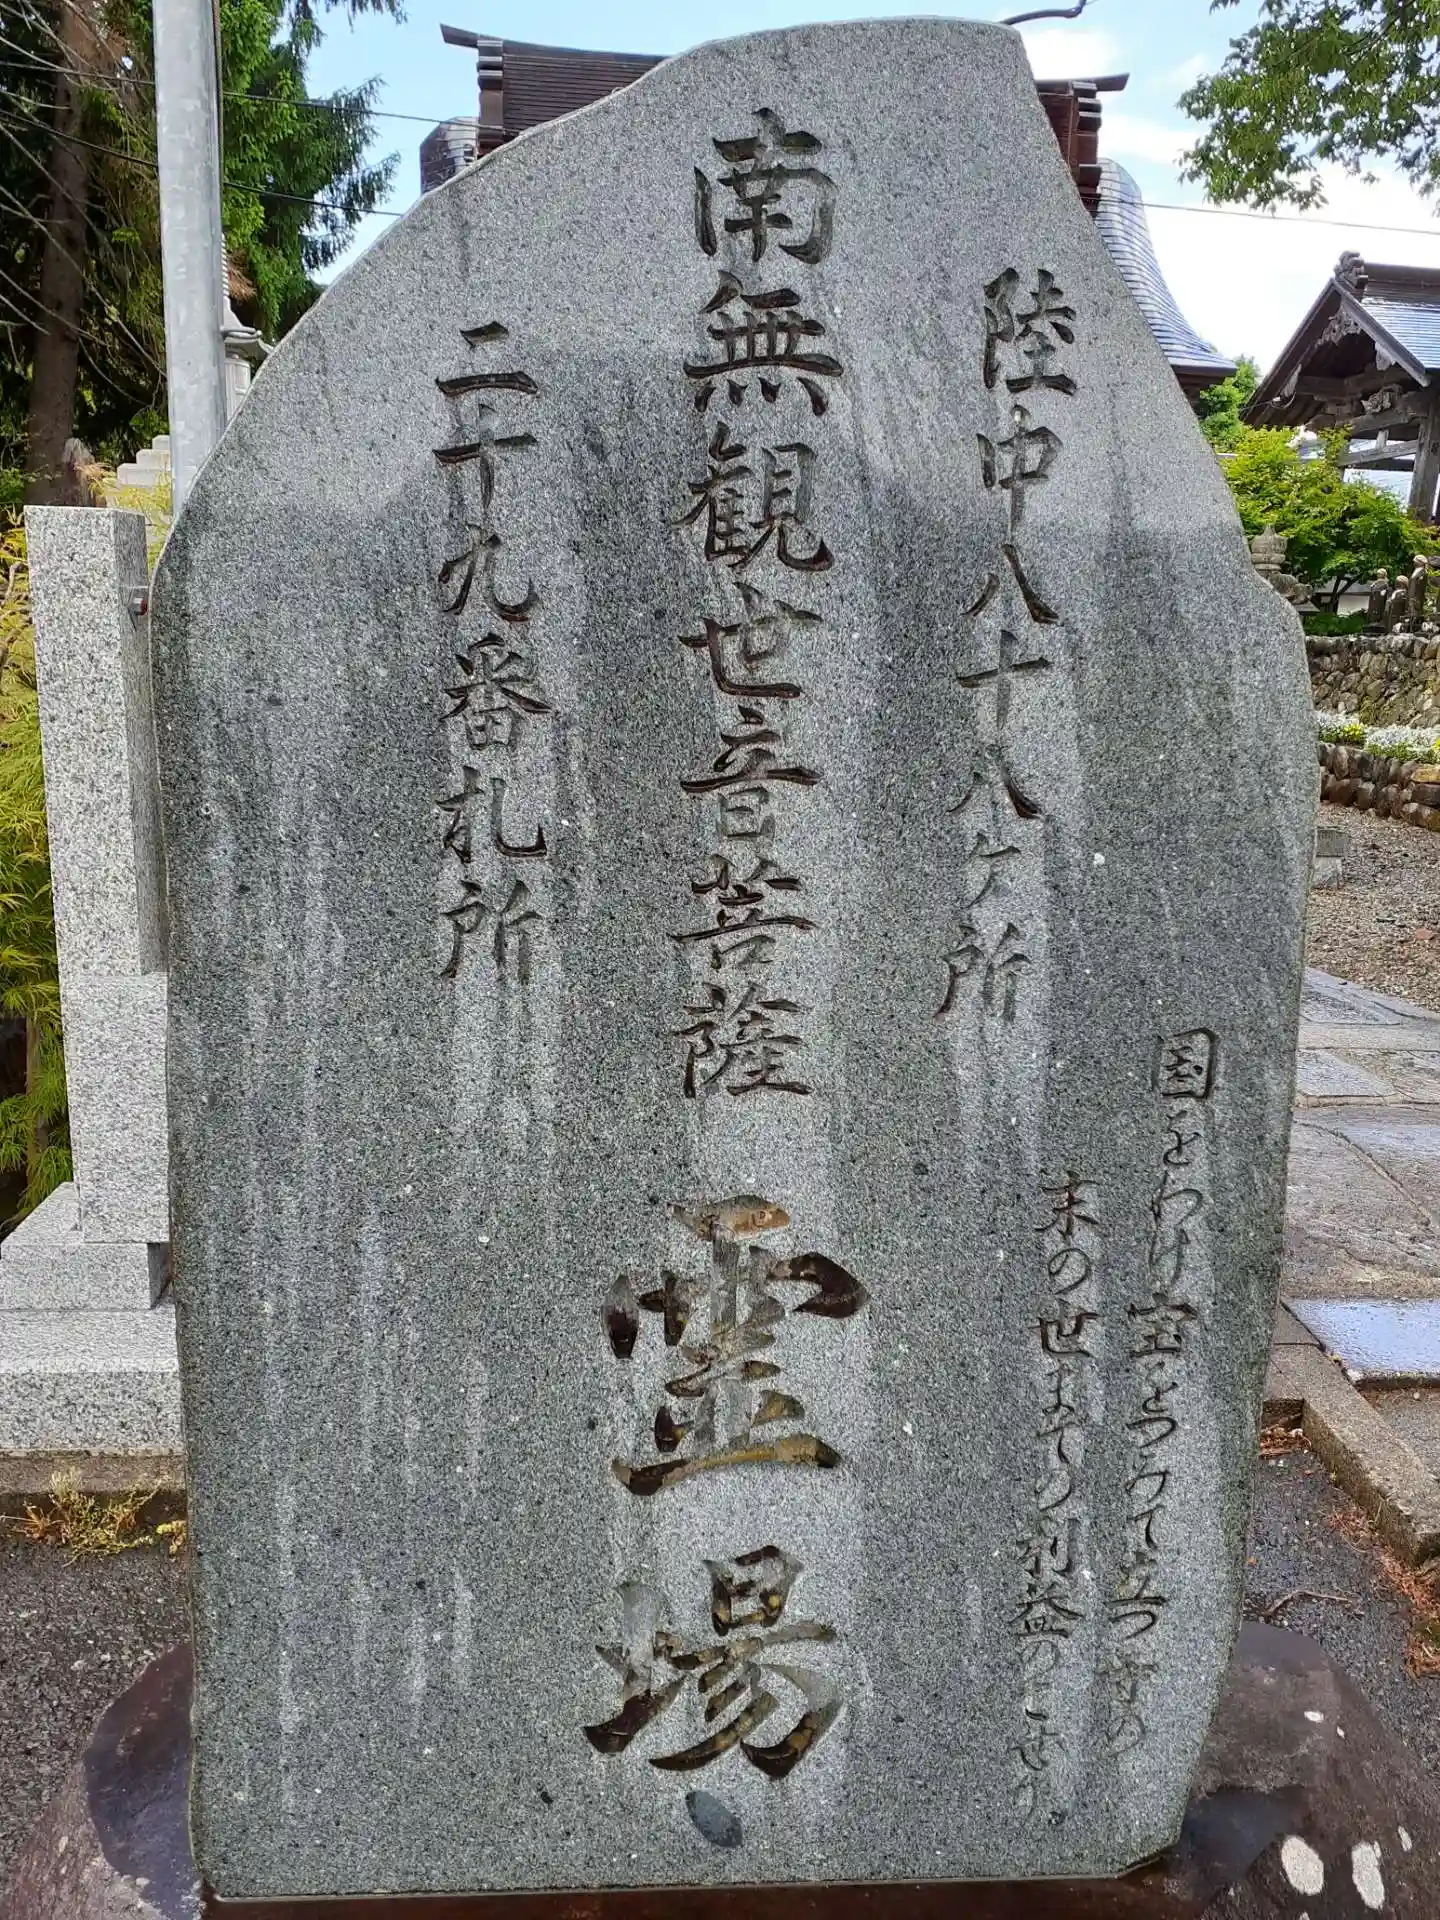 国をわけ宝をつみて立つ寺の
末の世までの利益のこせり
陸中八十八ケ所
南無観世音菩薩 霊場
二十九番札所